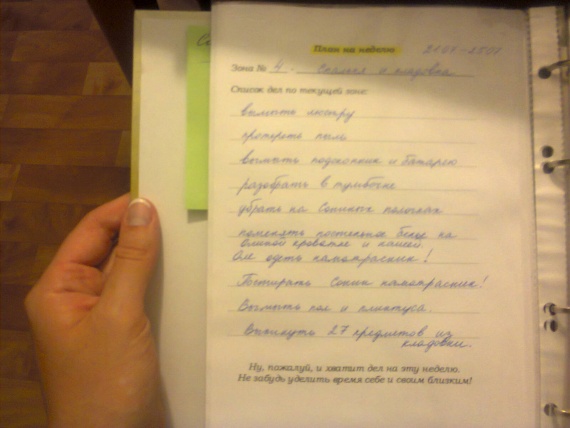 План на неделю 21.01-25.01
Зона № 4 - Спальня и кладовка
Список дел по текущей зоне:
вымыть люстру
протереть пыль
вымыть подоконник и батарею
разобрать в тумбочке
убрать на Сониных полочках
поменять постельное белье на
Олиной кроватке и нашей.
Оле одеть наматрасник!
Постирать Сонин наматрасник!
Вымыть пол и плинтуса.
Выкинуть 27 предметов из
кладовки.
Ну, пожалуй, и хватит дел на эту неделю.
Не забудь уделить время себе и своим близким!